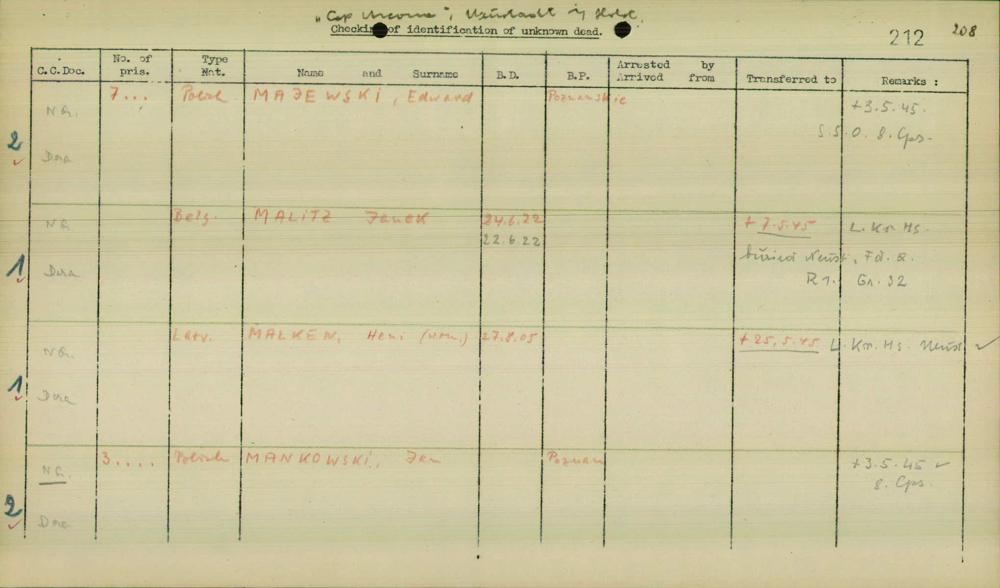 „Cap Arcona“, Neustadt i/ Holst.
Checking of identification of unknown dead.
212 208
C.C.Doc. No. of pris. Type Nat. Name and Surname B.D. B.P. Arrested by Arrived from Transferred to Remarks :
7... Polish MAJEWSKI, Edward Poznanskie +3.5.45.
N G.
2 S.S.O. 8. Cps.
Dora
Belg. MALITZ Janek 24.6.22 +7.5.45 L. Kr. Hs.
N G. 22.6.22
1 Dora buried Neust, Fd. 2.
R 1. Gr. 32
Latv. MALKEN, Heni 27.8.05 +25.5.45 L. Kr. Hs. Neust ✓
N G.
1 Dora
3.... Polish MANKOWSKI, Jan Poznan +3.5.45 ✓
N G. 8. Cps.
2 Dora